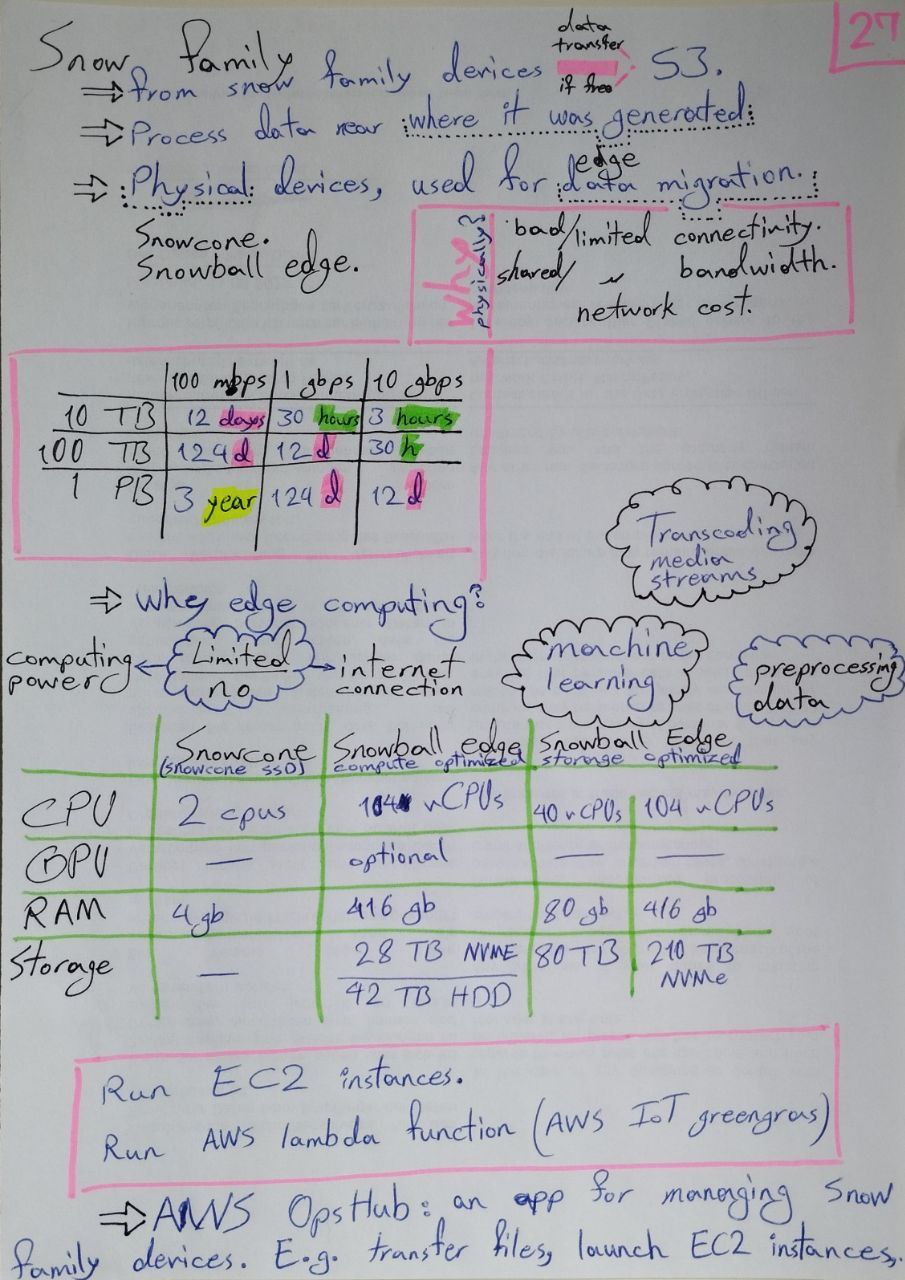 27
Snow family
⇒ from snow family devices data transfer if free S3.
⇒ Process data near where it was generated.
edge
⇒ Physical devices, used for data migration.
Snowcone.
Snowball edge.
Why physically?
bad/limited connectivity.
shared/ " bandwidth.
network cost.
100 mbps 1 gbps 10 gbps
10 TB 12 days 30 hours 3 hours
100 TB 124 d 12 d 30 h
1 PB 3 year 124 d 12 d
Transcoding
media
streams
⇒ Why edge computing?
computing power ← Limited / no → internet connection
machine
learning
preprocessing
data
Snowcone Snowball edge Snowball Edge
(snowcone SSD) compute optimized storage optimized
CPU 2 cpus 104 vCPUs 40 vCPUs 104 vCPUs
GPU — optional — —
RAM 4 gb 416 gb 80 gb 416 gb
Storage — 28 TB NVME 80 TB 210 TB
42 TB HDD NVMe
Run EC2 instances.
Run AWS lambda function (AWS IoT greengras)
⇒ AWS OpsHub: an app for managing Snow
family devices. E.g. transfer files, launch EC2 instances,.